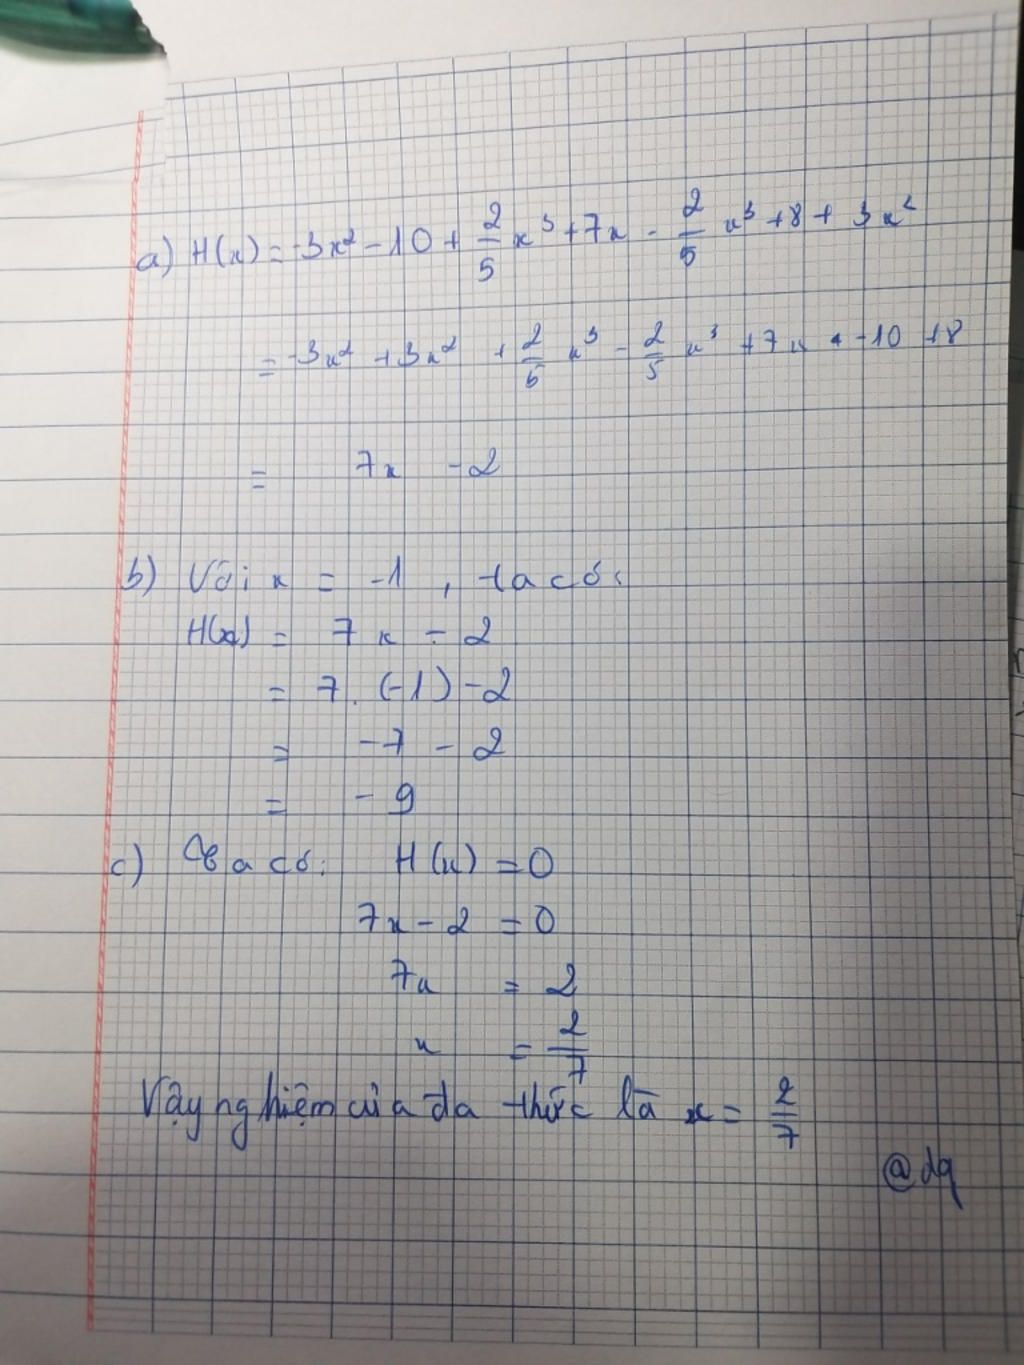 a) H(x) = -3x² - 10 + 2/5 x³ + 7x - 2/5 x³ + 8 + 3x²
= -3x² + 3x² + 2/5 x³ - 2/5 x³ + 7x - 10 + 8
= 7x - 2
b) Với x = -1 , ta có:
H(x) = 7x - 2
= 7. (-1) - 2
= -7 - 2
= -9
c) Ta có: H(x) = 0
7x - 2 = 0
7x = 2
x = 2/7
Vậy nghiệm của đa thức là x = 2/7
@dq